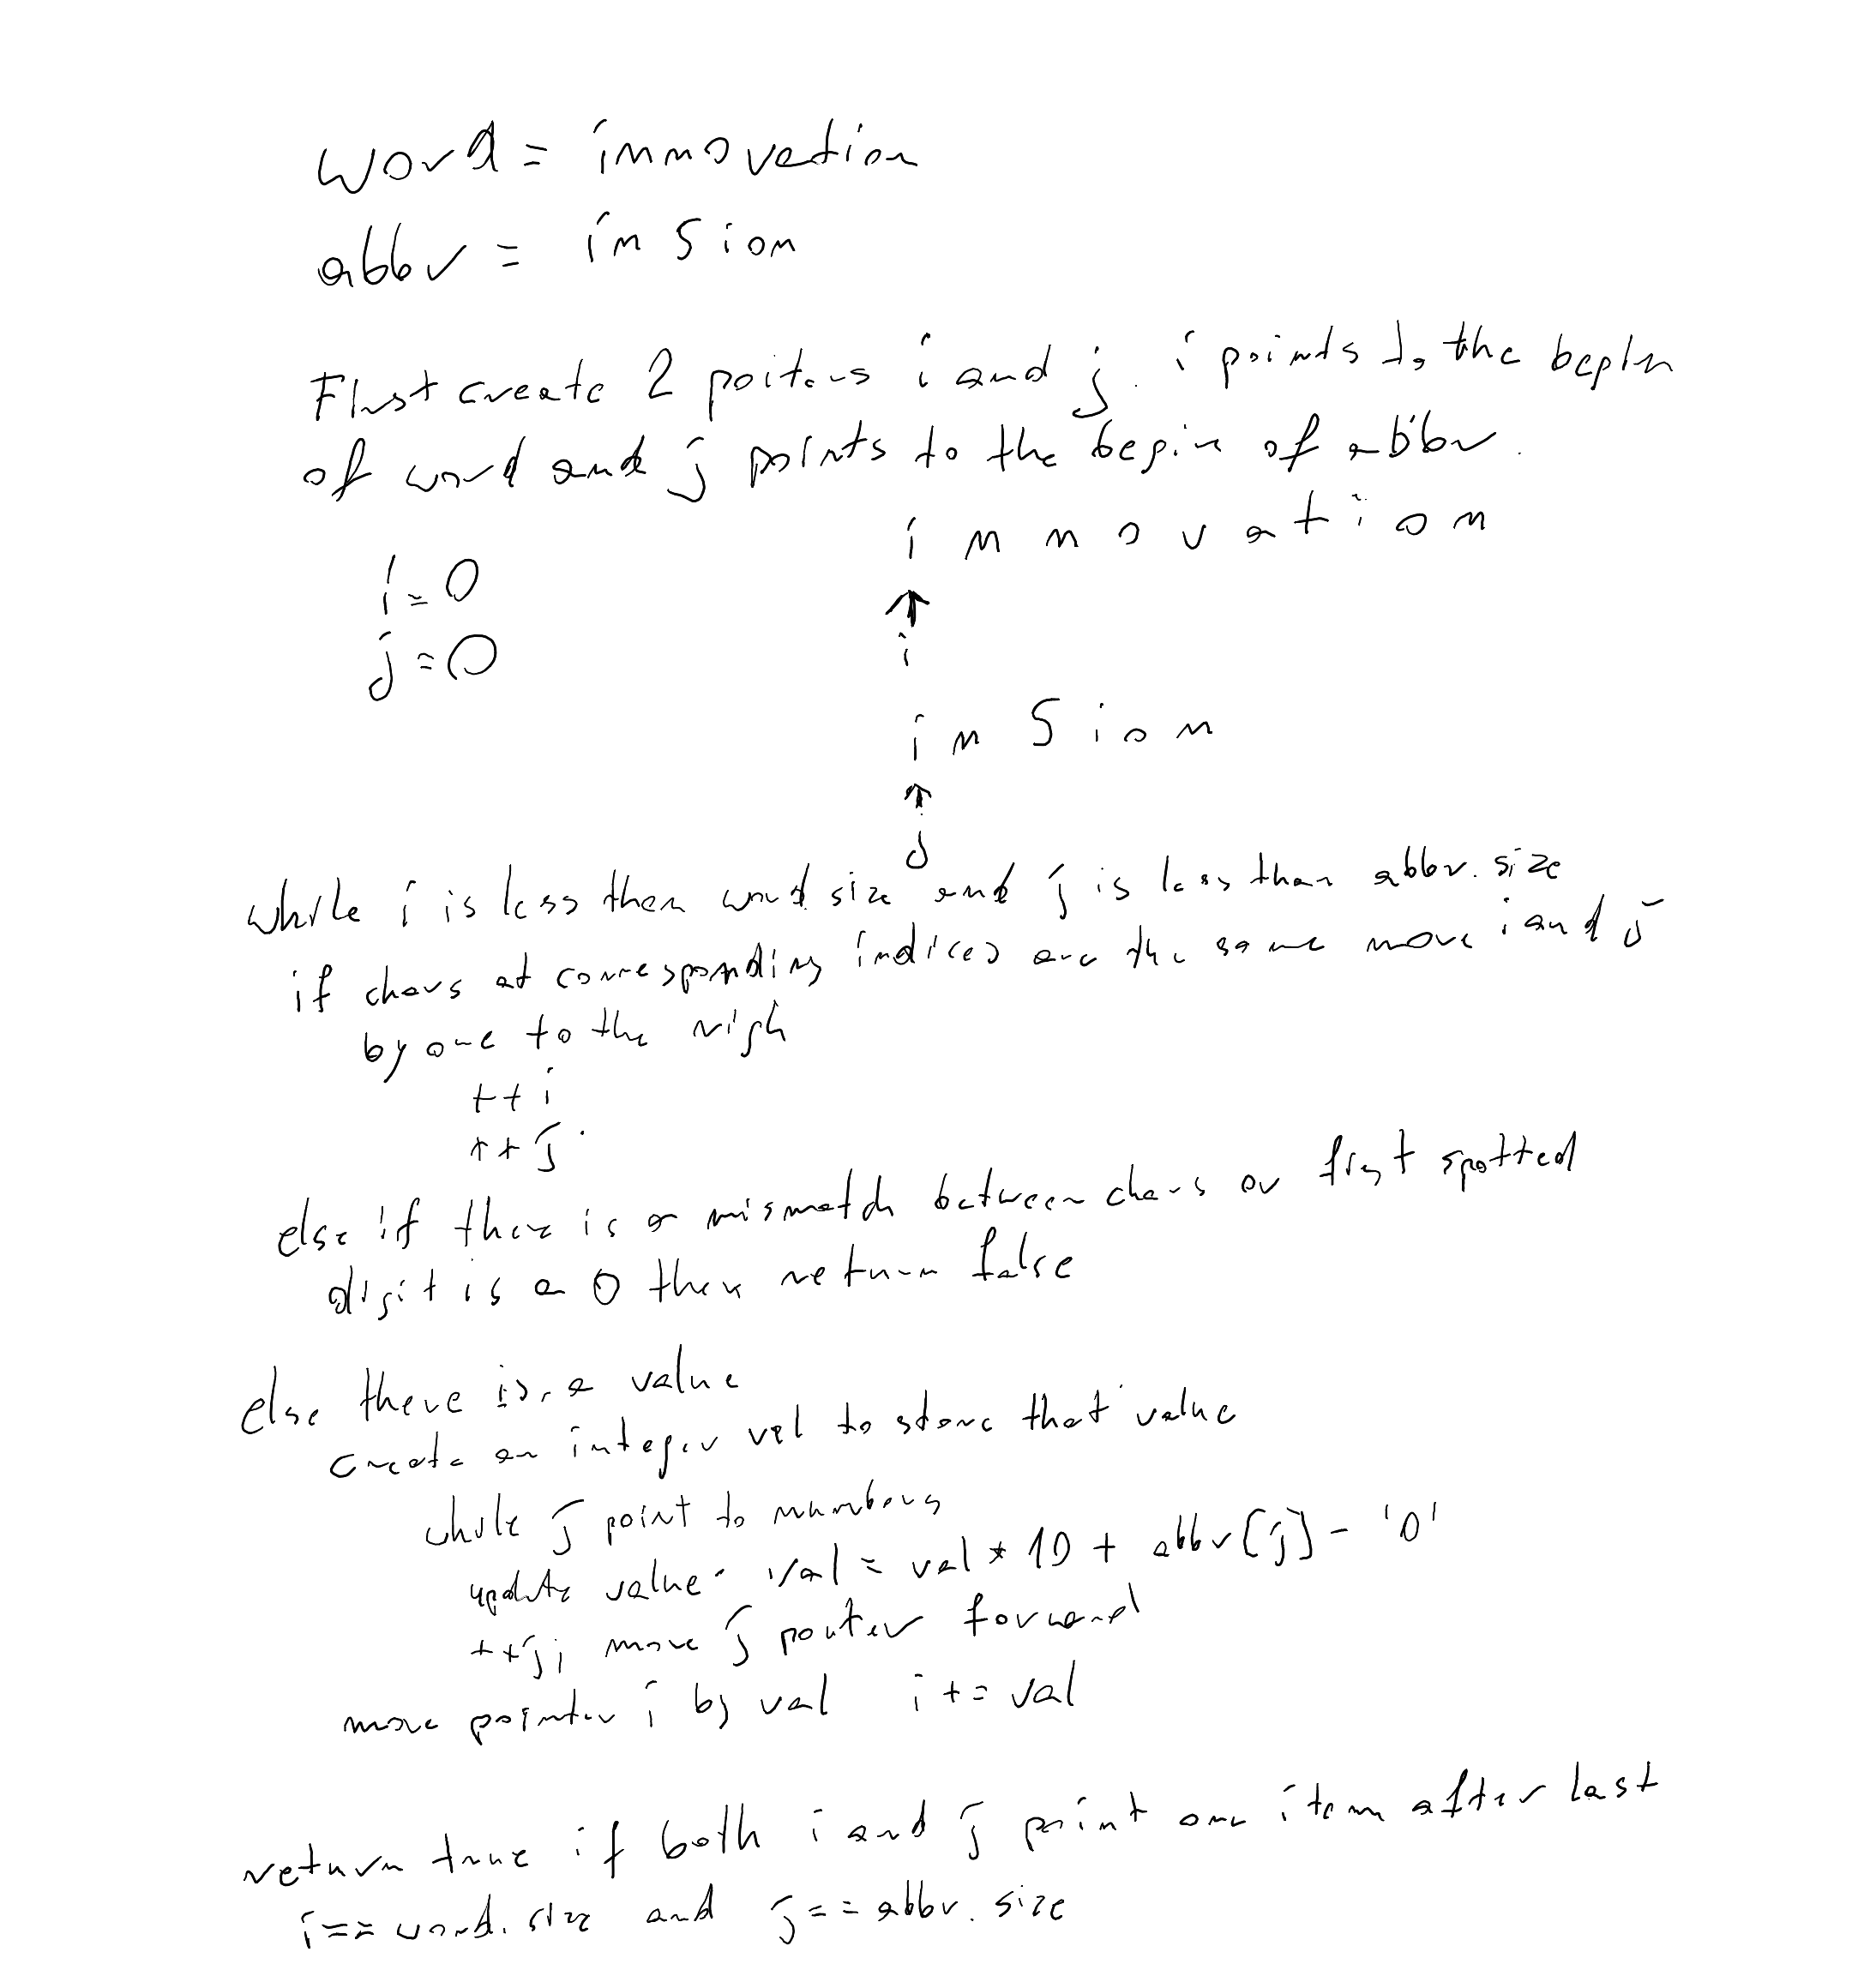 word = innovation
abbv = in 5 ion
First create 2 poiters i and j. i points to the begin
of word and j points to the begin of abbv.
i n n o v a t i o n
i = 0
i
j = 0
i n 5 i o n
j
while i is less then word size and j is less than abbv. size
if chars at corresponding indices are the same move i and j
by one to the righ
++i
++j
else if there is a mismatch between chars or first spotted
digit is a 0 then return false
else there is a value
create an integer val to store that value
while j point to numbers
update value. val = val * 10 + abbv[j] - '0'
++j; move j pouter forward
move pointer i by val i += val
return true if both i and j point one item after last
i == word. size and j == abbv. size